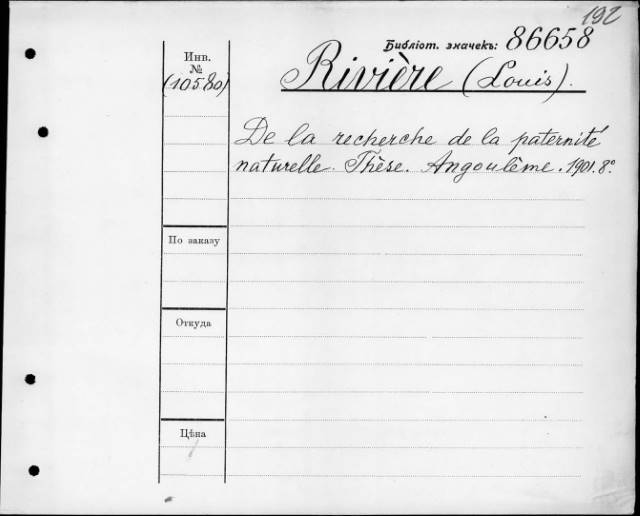 192
Библіот. значекъ: 86658
Инв.
№
(10580)
Rivière (Louis).
De la recherche de la paternité
naturelle. Thèse. Angoulême. 1901. 8º
По заказу
Откуда
Цѣна